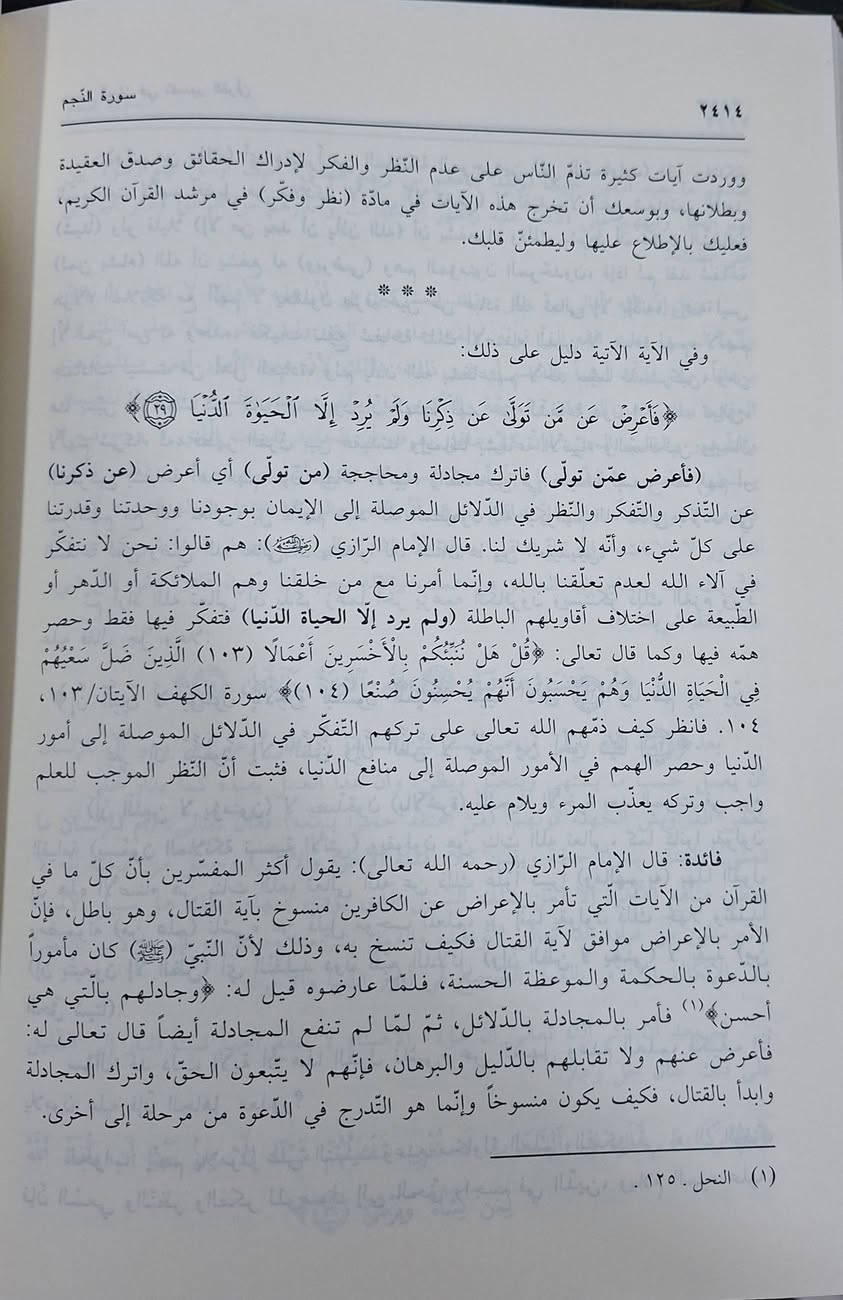 ٢٤١٤ سورة النّجم
ووردت آيات كثيرة تذمّ النّاس على عدم النّظر والفكر لإدراك الحقائق وصدق العقيدة
وبطلانها، وبوسعك أن تخرج هذه الآيات في مادّة (نظر وفكّر) في مرشد القرآن الكريم،
فعليك بالإطلاع عليها وليطمئنّ قلبك.
* * *
وفي الآية الآتية دليل على ذلك:
﴿فَأَعْرِضْ عَن مَّن تَوَلَّىٰ عَن ذِكْرِنَا وَلَمْ يُرِدْ إِلَّا الْحَيَوٰةَ الدُّنْيَا ٢٩﴾
(فأعرض عمّن تولّى) فاترك مجادلة ومحاججة (من تولّى) أي أعرض (عن ذكرنا)
عن التّذكر والتّفكر والنّظر في الدّلائل الموصلة إلى الإيمان بوجودنا ووحدتنا وقدرتنا
على كلّ شيء، وأنّه لا شريك لنا. قال الإمام الرّازي (رضي الله عنه): هم قالوا: نحن لا نتفكّر
في آلاء الله لعدم تعلّقنا بالله، وإنّما أمرنا مع من خلقنا وهم الملائكة أو الدّهر أو
الطّبيعة على اختلاف أقاويلهم الباطلة (ولم يرد إلّا الحياة الدّنيا) فتفكّر فيها فقط وحصر
همّه فيها وكما قال تعالى: ﴿قُلْ هَلْ نُنَبِّئُكُمْ بِالْأَخْسَرِينَ أَعْمَالًا (١٠٣) الَّذِينَ ضَلَّ سَعْيُهُمْ
فِي الْحَيَاةِ الدُّنْيَا وَهُمْ يَحْسَبُونَ أَنَّهُمْ يُحْسِنُونَ صُنْعًا (١٠٤)﴾ سورة الكهف الآيتان/١٠٣،
١٠٤. فانظر كيف ذمّهم الله تعالى على تركهم التّفكّر في الدّلائل الموصلة إلى أمور
الدّنيا وحصر الهمم في الأمور الموصلة إلى منافع الدّنيا، فثبت أنّ النّظر الموجب للعلم
واجب وتركه يعذّب المرء ويلام عليه.
فائدة: قال الإمام الرّازي (رحمه الله تعالى): يقول أكثر المفسّرين بأنّ كلّ ما في
القرآن من الآيات الّتي تأمر بالإعراض عن الكافرين منسوخ بآية القتال، وهو باطل، فإنّ
الأمر بالإعراض موافق لآية القتال فكيف تنسخ به، وذلك لأنّ النبيّ (ﷺ) كان مأموراً
بالدّعوة بالحكمة والموعظة الحسنة، فلمّا عارضوه قيل له: ﴿وجادلهم بالّتي هي
أحسن﴾(١) فأمر بالمجادلة بالدّلائل، ثمّ لمّا لم تنفع المجادلة أيضاً قال تعالى له:
فأعرض عنهم ولا تقابلهم بالدّليل والبرهان، فإنّهم لا يتّبعون الحقّ، واترك المجادلة
وابدأ بالقتال، فكيف يكون منسوخاً وإنّما هو التّدرج في الدّعوة من مرحلة إلى أخرى.
(١) النحل. ١٢٥.